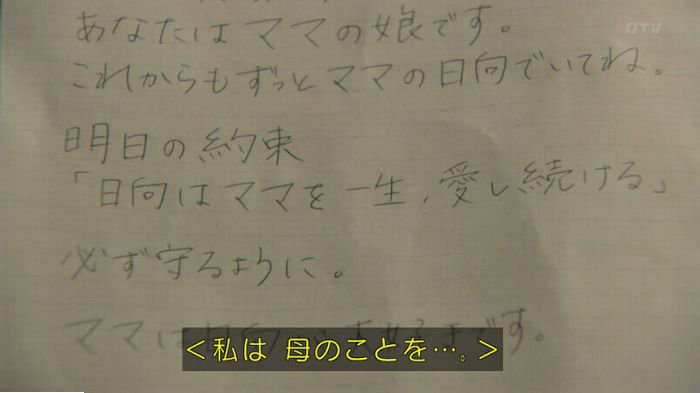 OTV
あなたはママの娘です。
これからもずっとママの日向でいてね。
明日の約束
「日向はママを一生、愛し続ける」
必ず守るように。
ママは日向が大好きです。
<私は 母のことを…。>